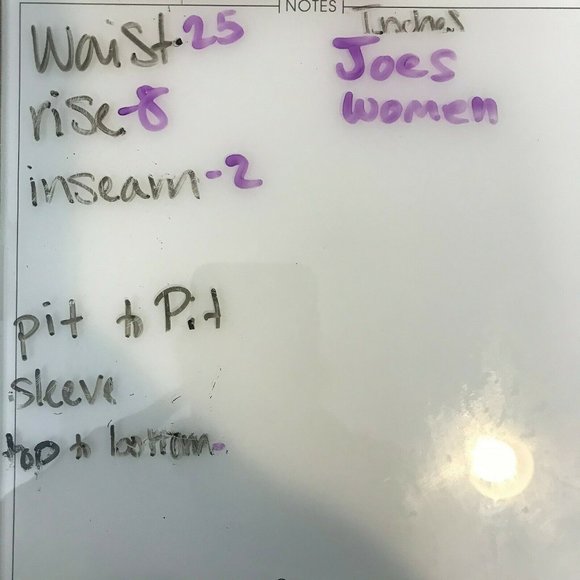 NOTES
Waist-25
rise-8
inseam-2
pit to Pit
sleeve
top to bottom-
Inches
Joes
women